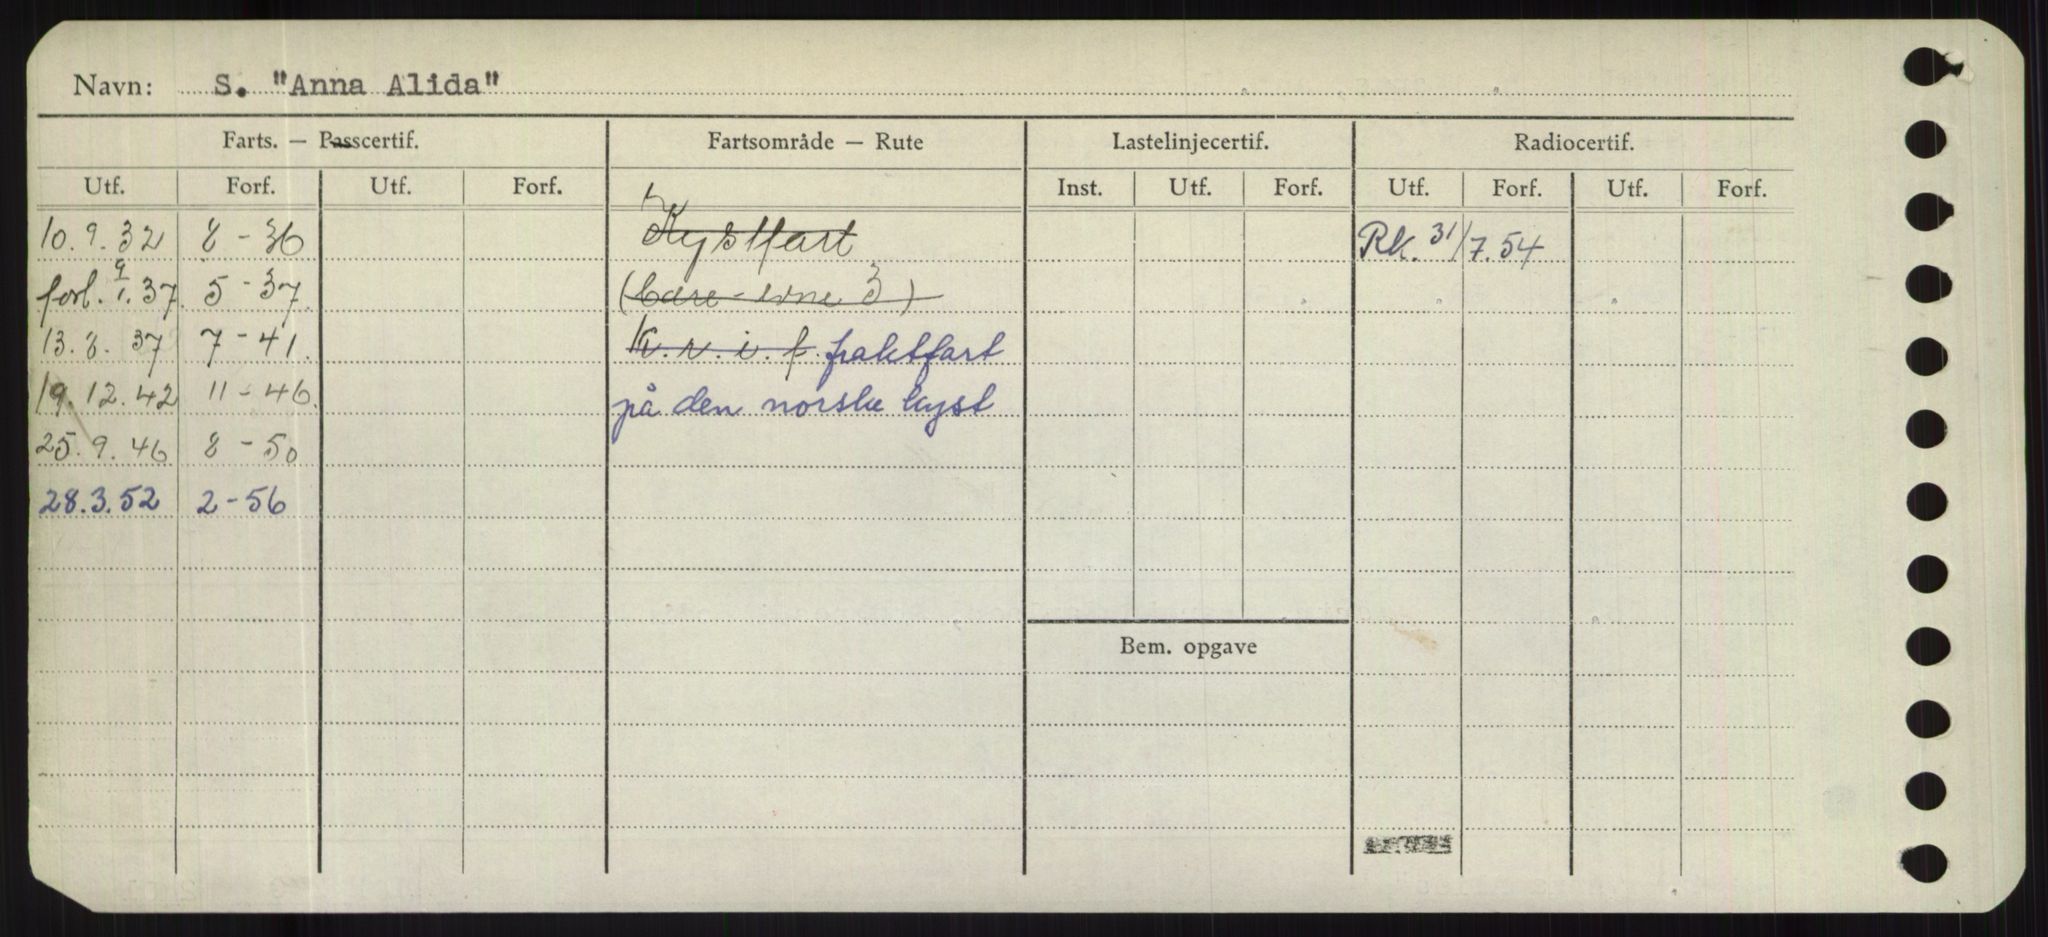 Navn: S. "Anna Alida"
Farts. — Passcertif. Fartsområde — Rute Lastelinjecertif. Radiocertif.
Utf. Forf. Utf. Forf. Inst. Utf. Forf. Utf. Forf. Utf. Forf.
10.9.32 8-36 Kystfart Rk. 31/7.54
forl. 9/1.37. 5-37. (bære-evne 3)
13.8.37 7-41. K.v.i.f. fraktfart
19.12.42 11-46. på den norske kyst
25.9.46 8-50
28.3.52 2-56
Bem. opgave